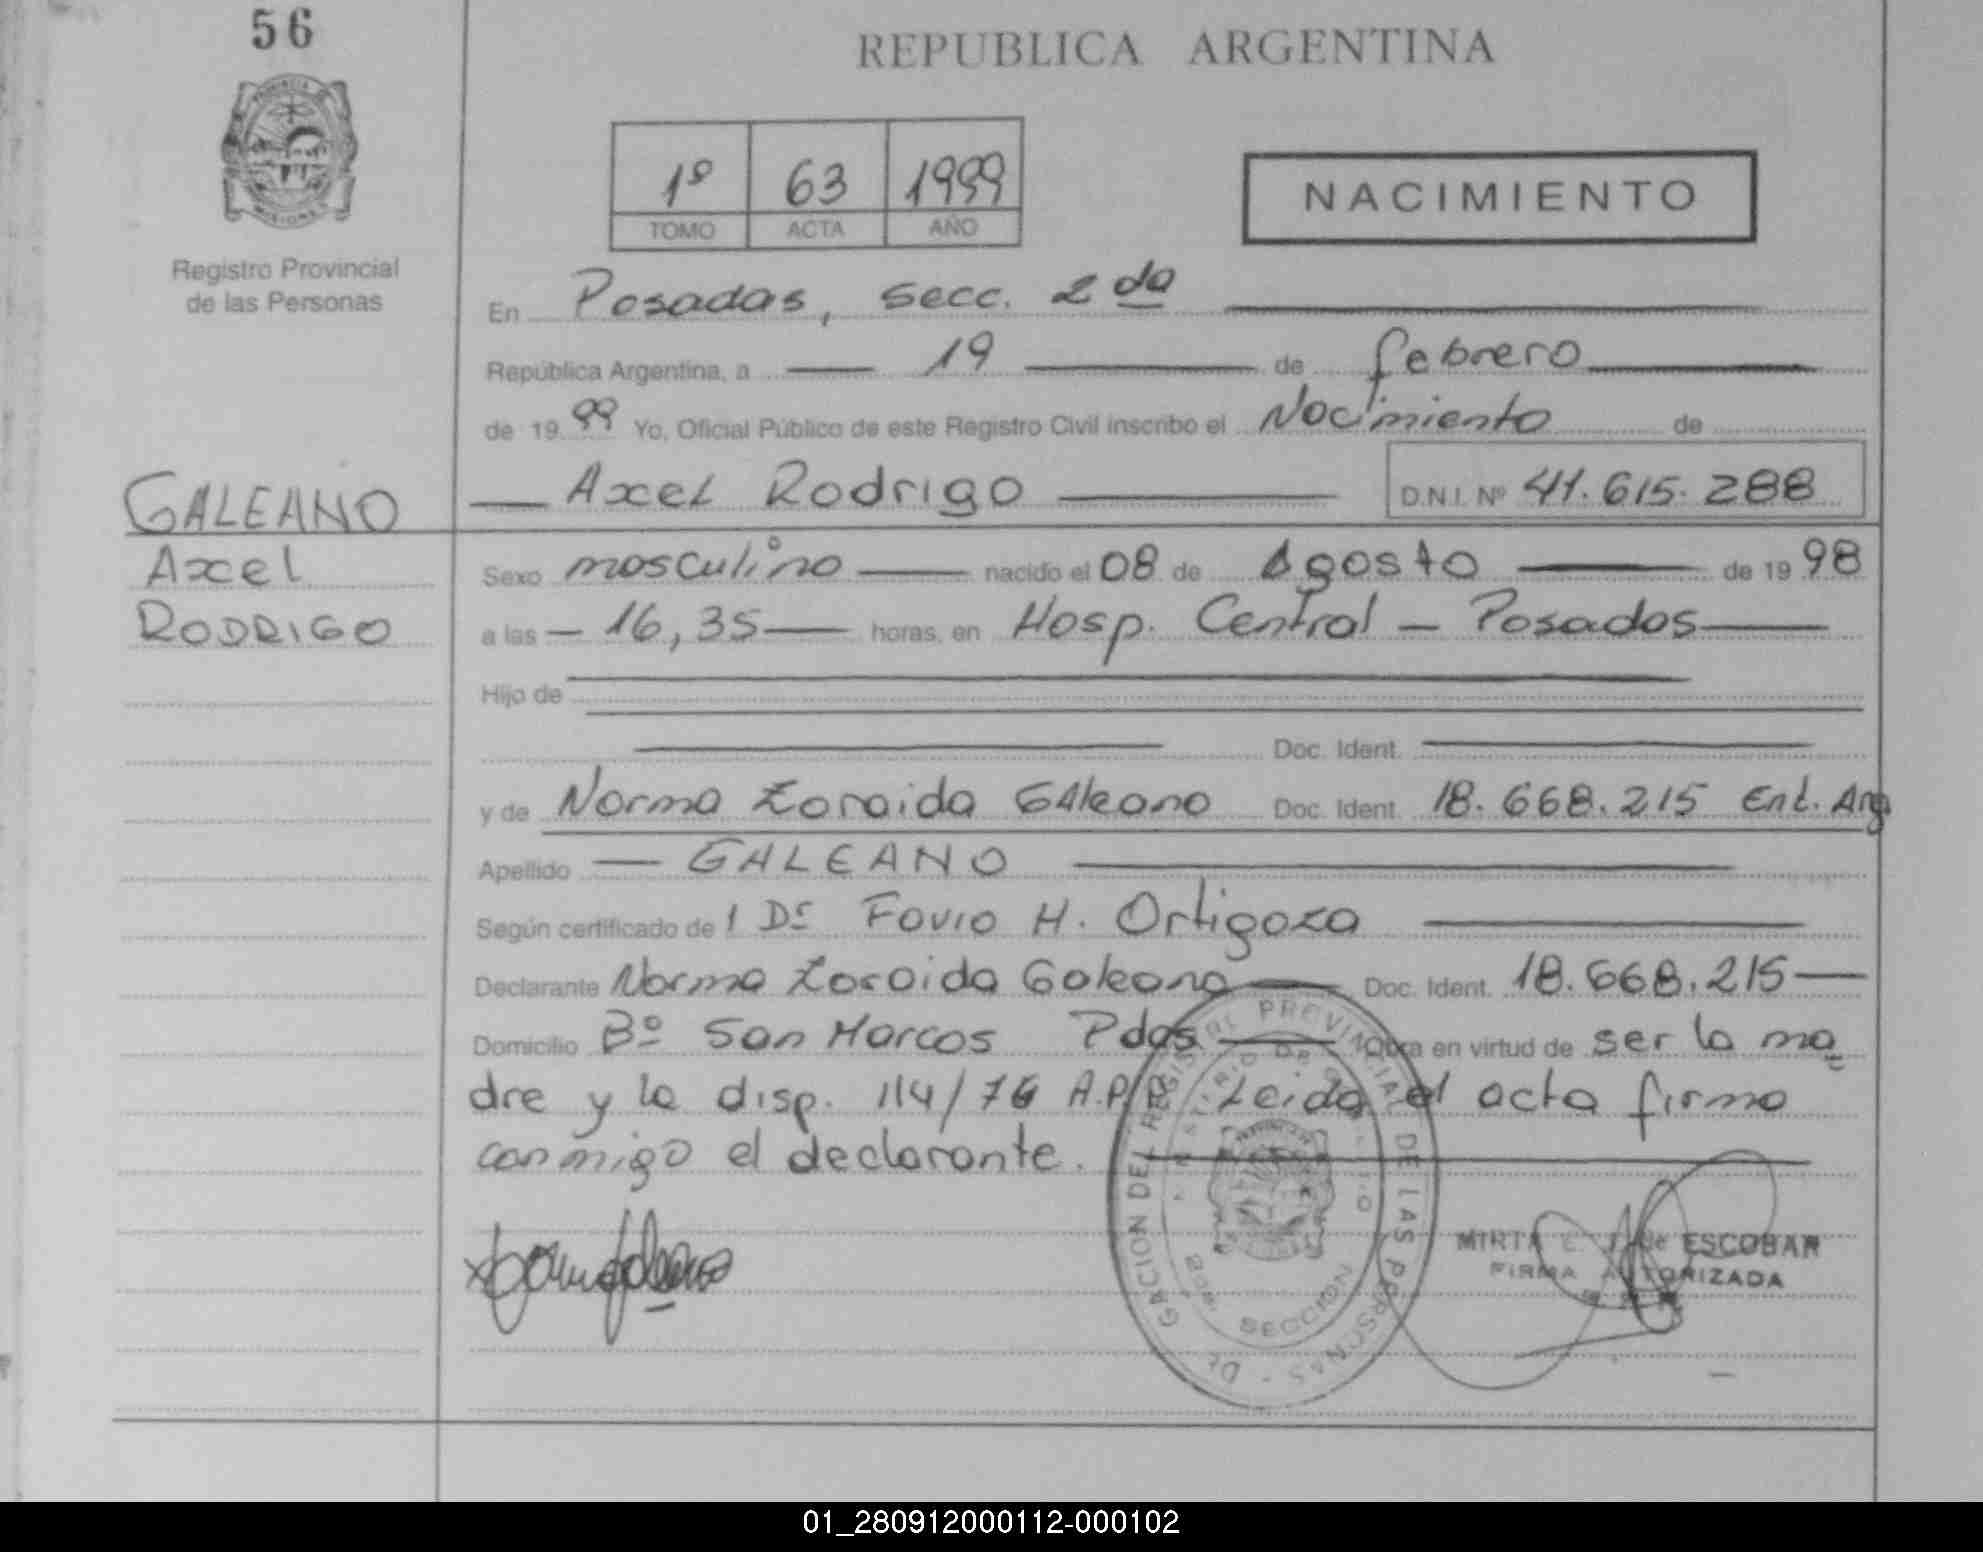 56
REPUBLICA ARGENTINA
1º 63 1999
TOMO ACTA AÑO
NACIMIENTO
Registro Provincial
de las Personas
En Posadas, secc. 2da
República Argentina, a 19 de febrero
de 1999 Yo, Oficial Público de este Registro Civil inscribo el Nacimiento de
Axel Rodrigo D.N.I. Nº 41.615.288
GALEANO
Axel
RODRIGO
Sexo masculino nacido el 08 de Agosto de 1998
a las 16,35 horas, en Hosp. Central - Posadas
Hijo de
Doc. Ident.
y de Norma Zoraida Galeano Doc. Ident. 18.668.215 Ent. Arg
Apellido GALEANO
Según certificado de l Dr Fovio H. Ortigoza
Declarante Norma Zoraida Galeano Doc. Ident. 18.668.215
Domicilio Bº San Marcos Pdas Obra en virtud de ser la ma
dre y la disp. 114/76 Leida el acta firma
conmigo el declarante.
MIRTA de ESCOBAR
FIRMA AUTORIZADA
PROVINCIAL DE LAS PERSONAS
SECCION
01_280912000112-000102